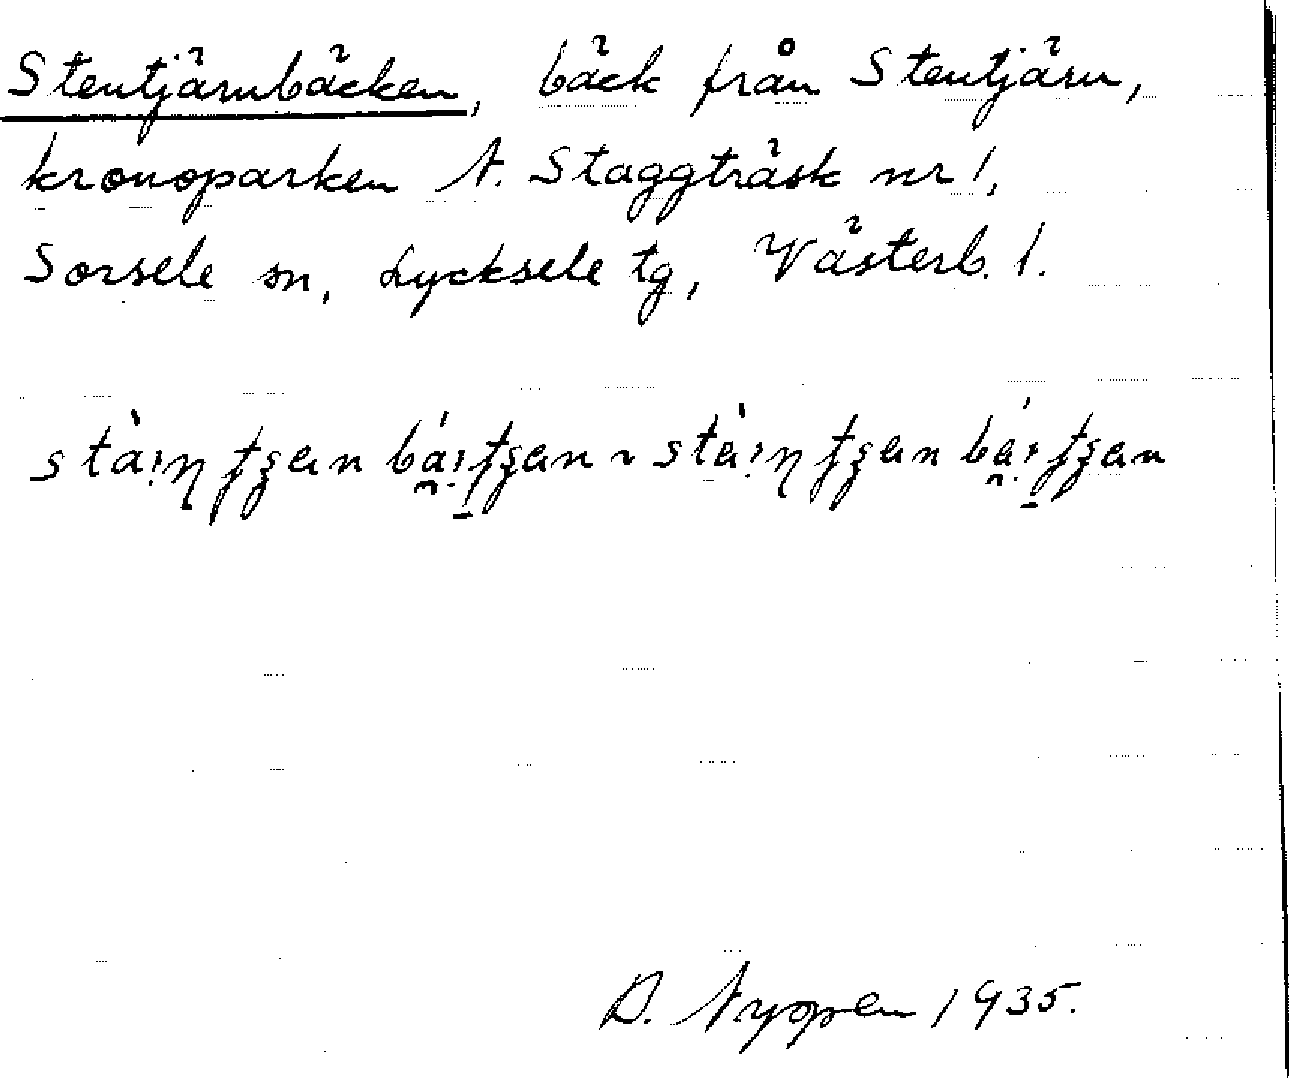 Stentjärnbäcken, bäck från Stentjärn,
kronoparken N. Staggträsk nr 1,
Sorsele sn, Lycksele tg, Västerb. l.
D. Nyppen 1935.